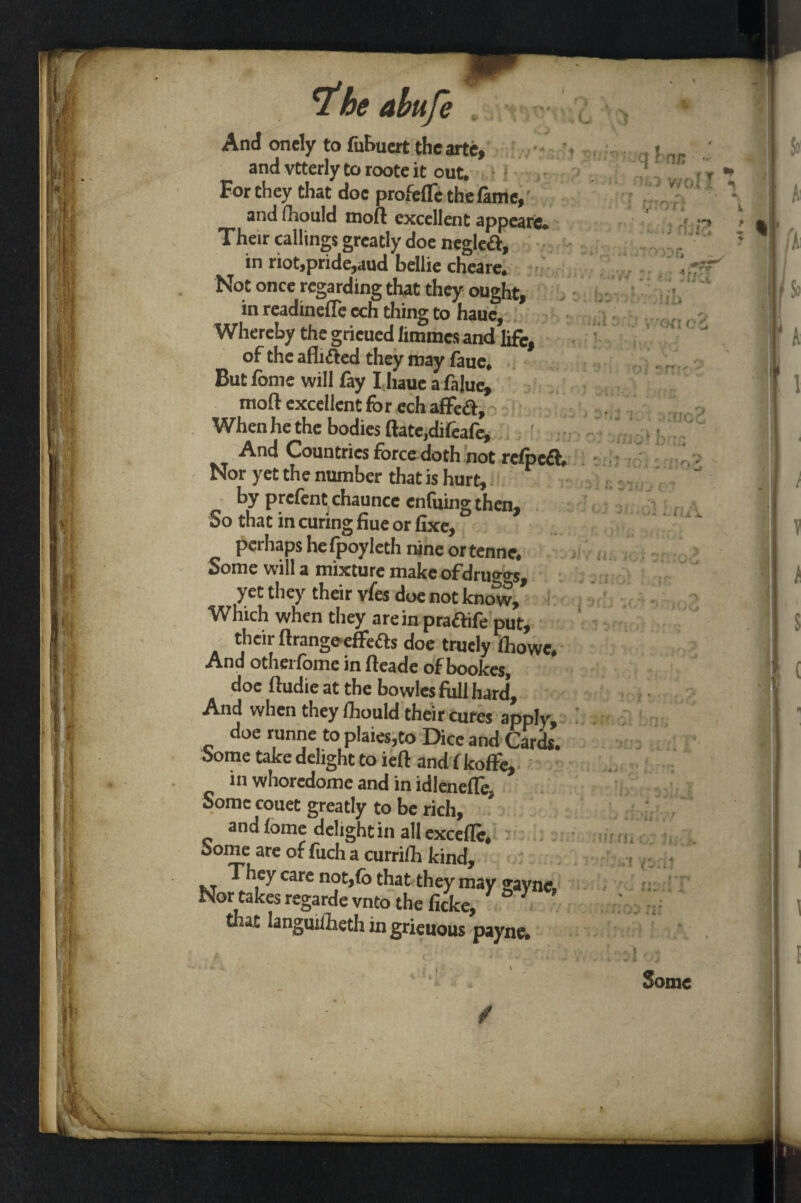 The abuse
And onely to ſubuert the arte,
and vtterly to roote it out.
For they that doe profeſſe the ſame,
and ſhould moſt excellent appeare.
Their callings greatly doe neglect,
in riot,pride,aud bellie cheare.
Not once regarding that they ought,
in readineſſe ech thing to haue,
Whereby the grieued limmes and life,
of the aflicted they may ſaue.
But ſome will ſay I haue a ſalue,
moſt excellent for ech affect,
When he the bodies ſtate,diſeaſe,
And Countries force doth not reſpect.
Nor yet the number that is hurt,
by preſent chaunce enſuing then,
So that in curing fiue or ſixe,
perhaps he ſpoyleth nine or tenne.
Some will a mixture make of druggs,
yet they their vſes doe not know,
Which when they are in practiſe put,
their ſtrange effects doe truely ſhowe.
And otherſome in ſteade of bookes,
doe ſtudie at the bowles full hard,
And when they ſhould their cures apply,
doe runne to plaies,to Dice and Cards.
Some take delight to ieſt and ſkoffe,
in whoredome and in idleneſſe,
Some couet greatly to be rich,
and ſome delight in all exceſſe.
Some are of ſuch a curriſh kind,
They care not,ſo that they may gayne,
Nor takes regarde vnto the ſicke,
that languiſheth in grieuous payne.
Some